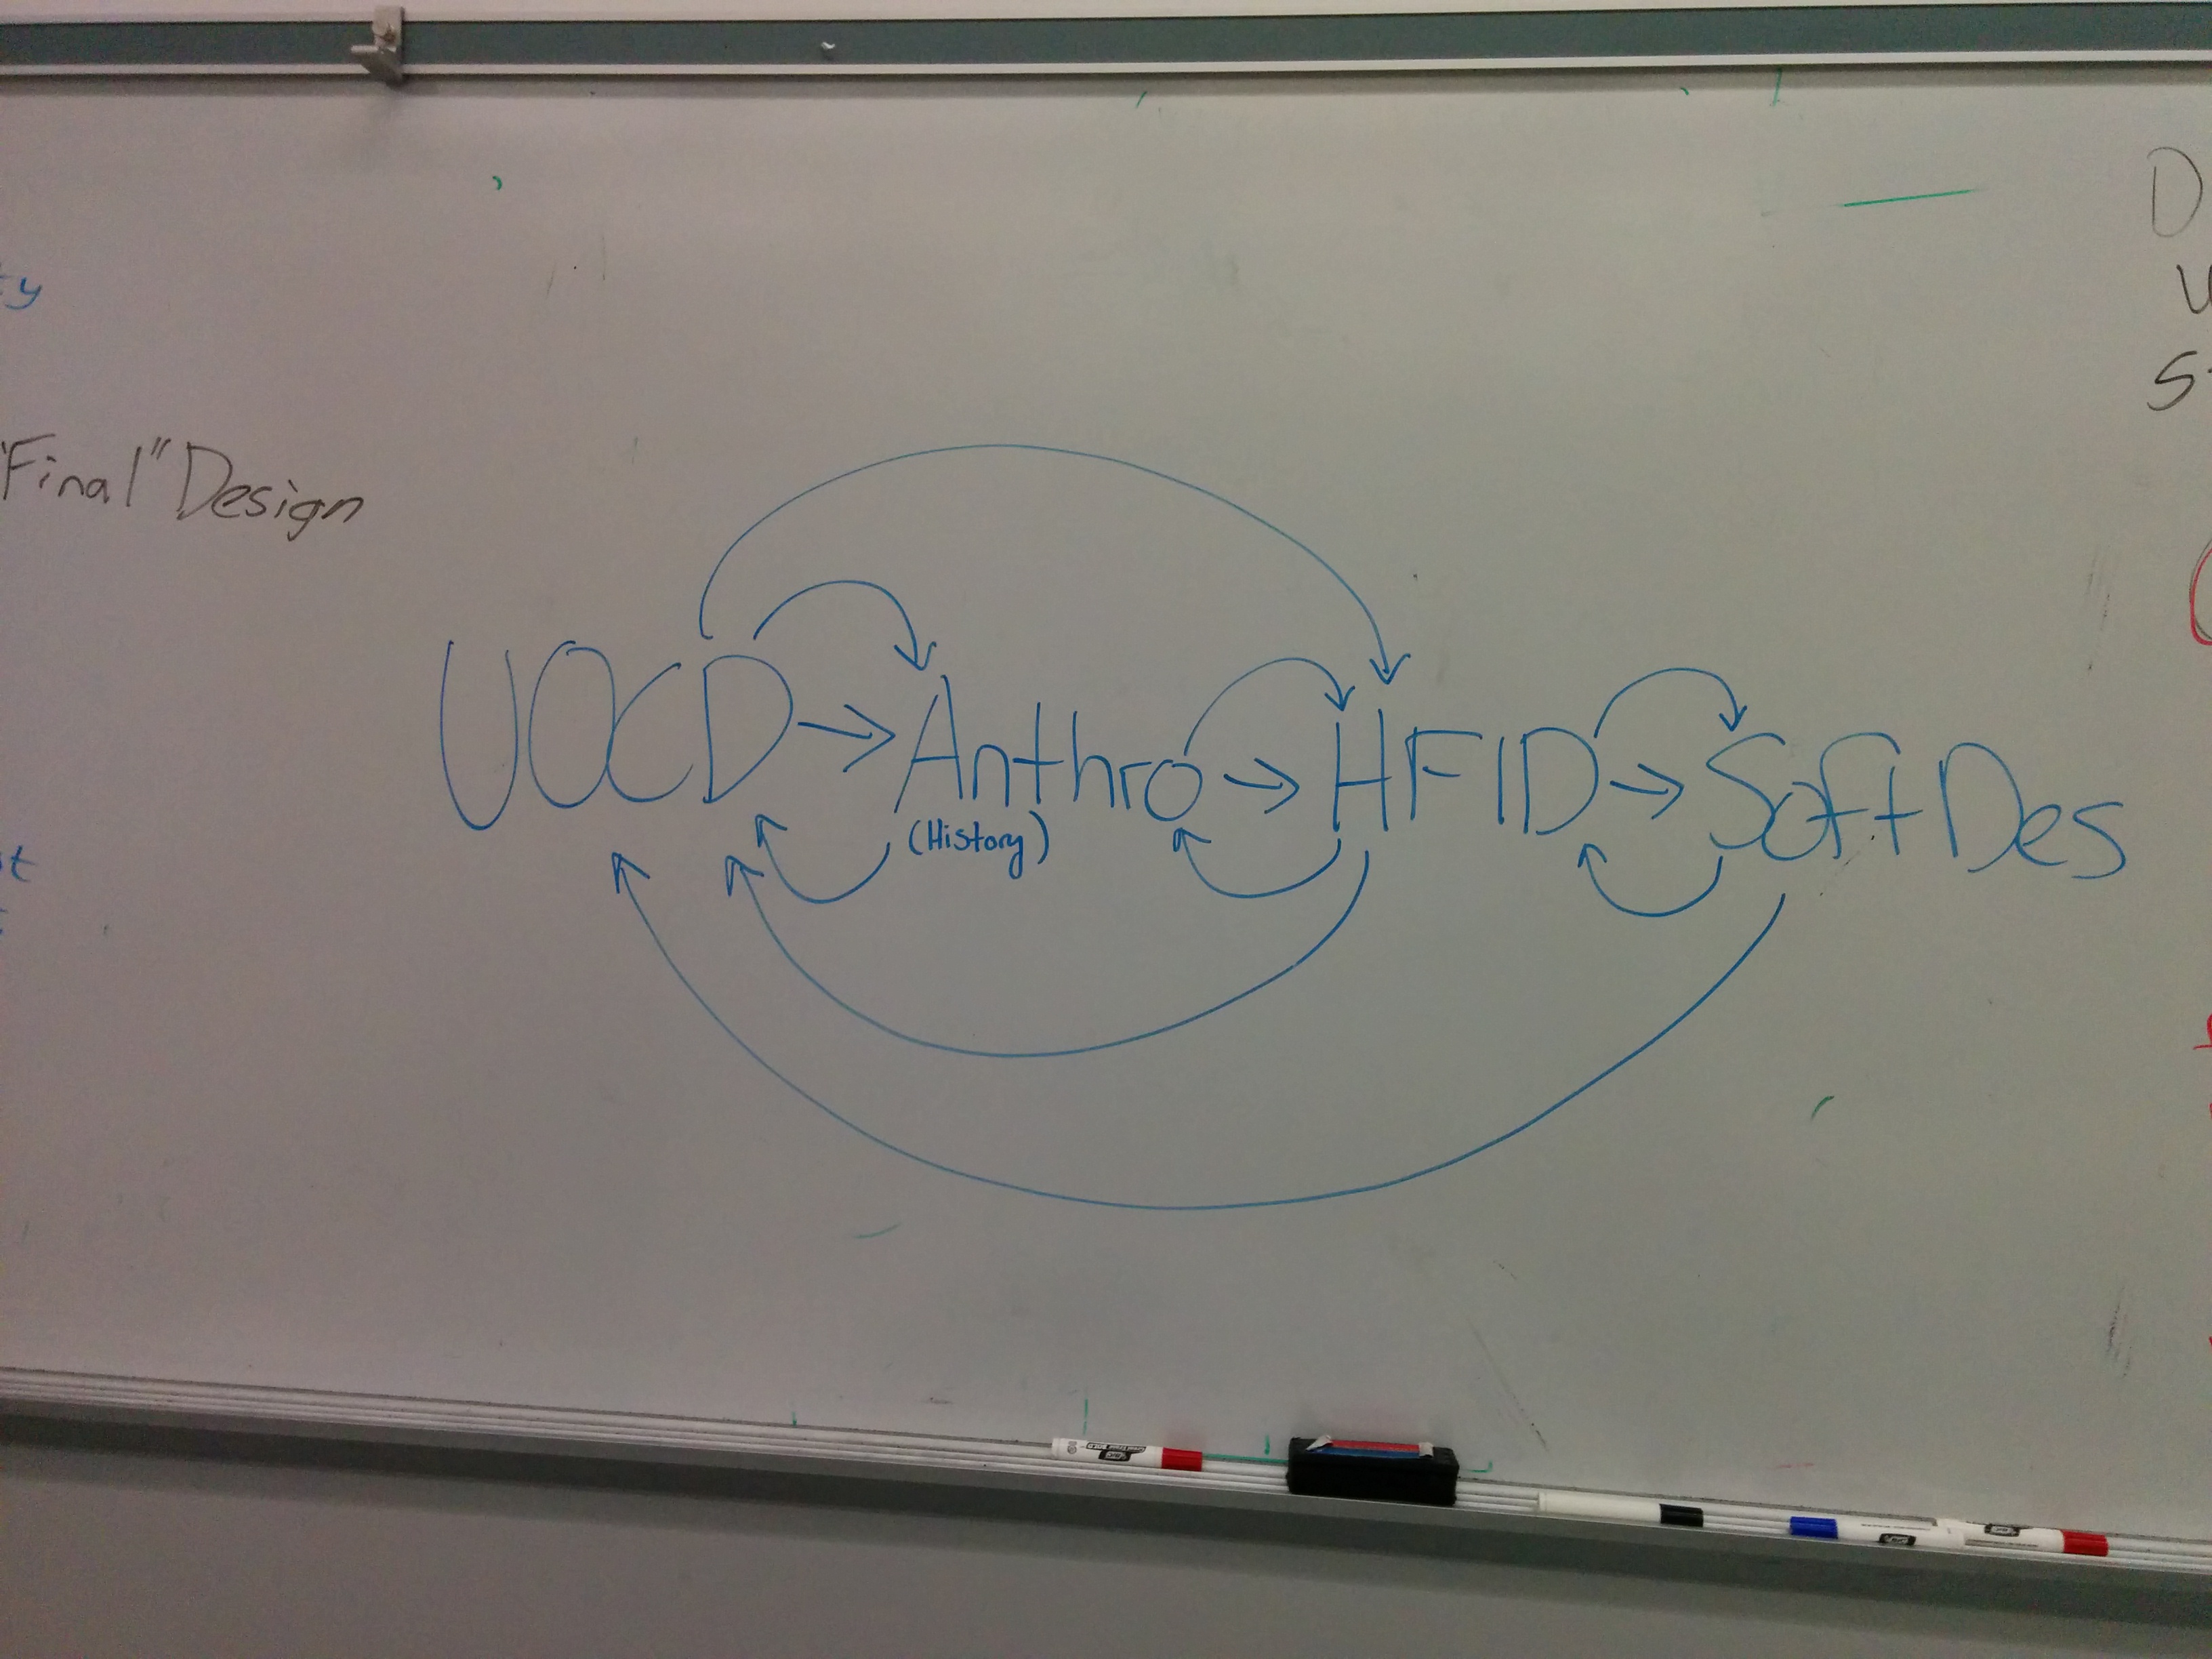 "Final" Design
UOCD → Anthro → HFID → SoftDes
(History)